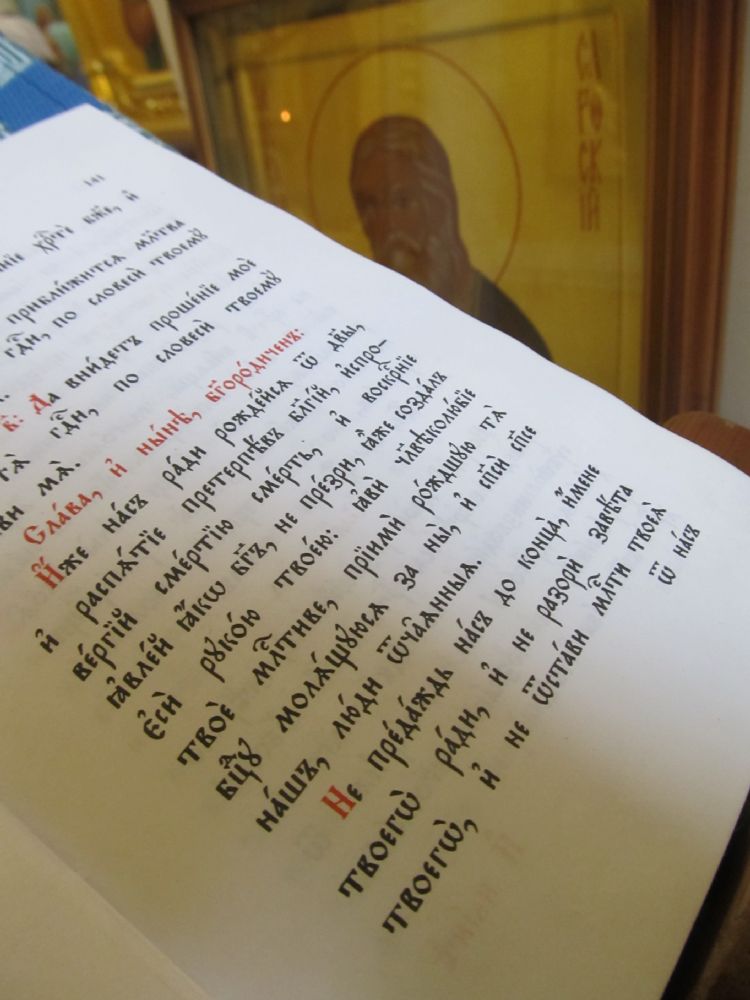 141
хрⷭ҇тѐ бж҃е, и҆
приближитсѧ мл҃тва
гдⷭ҇и, по словесѝ твоемꙋ̀
в҃: Да вни́детъ проше́нїе моѐ
гдⷭ҇и, по словесѝ твоемꙋ̀
мѧ̀.
Сла́ва, и҆ ны́нѣ, бг҃оро́диченъ:
И҆́же на́съ ра́ди рожде́йсѧ ѿ дв҃ы,
и҆ распѧ́тїе претерпѣ́въ бл҃гі́й, и҆спро-
ве́ргїй сме́ртїю сме́рть, и҆ воскрⷭ҇нїе
ꙗ҆вле́й ꙗ҆́кѡ бг҃ъ, не пре́зри, ꙗ҆̀же созда́лъ
є҆сѝ рꙋко́ю твое́ю: ꙗ҆вѝ члв҃ѣколю́бїе
твоѐ млⷭ҇тиве, прїимѝ ро́ждшꙋю тѧ̀
бцⷣꙋ молѧ́щꙋюсѧ за ны̀, и҆ сп҃сѝ сп҃се
на́шъ, лю́ди ѿча́ѧнныѧ.
Не преда́ждь на́съ до конца̀, и҆́мене
твоегѡ̀ ра́ди, и҆ не разорѝ завѣ́та
твоегѡ̀, и҆ не ѿста́ви млⷭ҇ти твоеѧ̀
ѿ на́съ